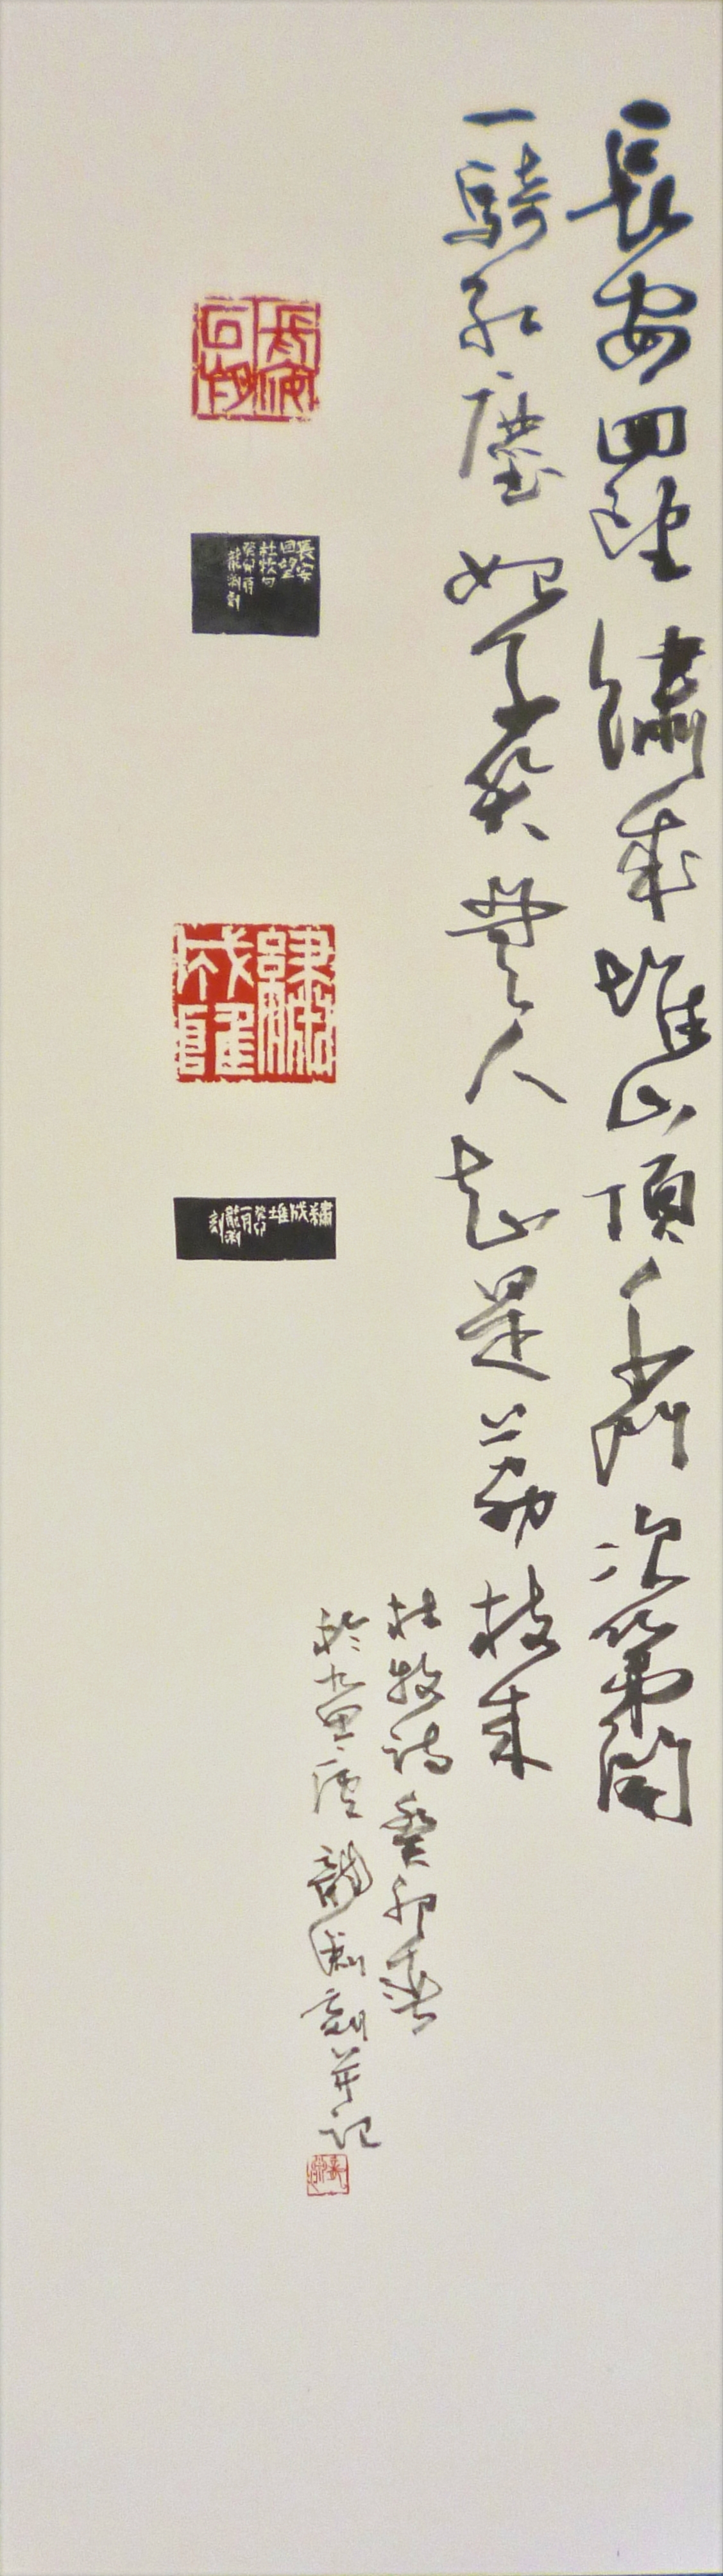 長安回望繡成堆山頂千門次第開
一騎紅塵妃子笑無人知是荔枝來
杜牧詩癸卯春
於九里廬龍淵刻并記
長安
回望
長安
回望
杜牧句
癸卯二月
龍淵刻
繡成堆
繡
成堆
癸卯
二月
龍淵
刻